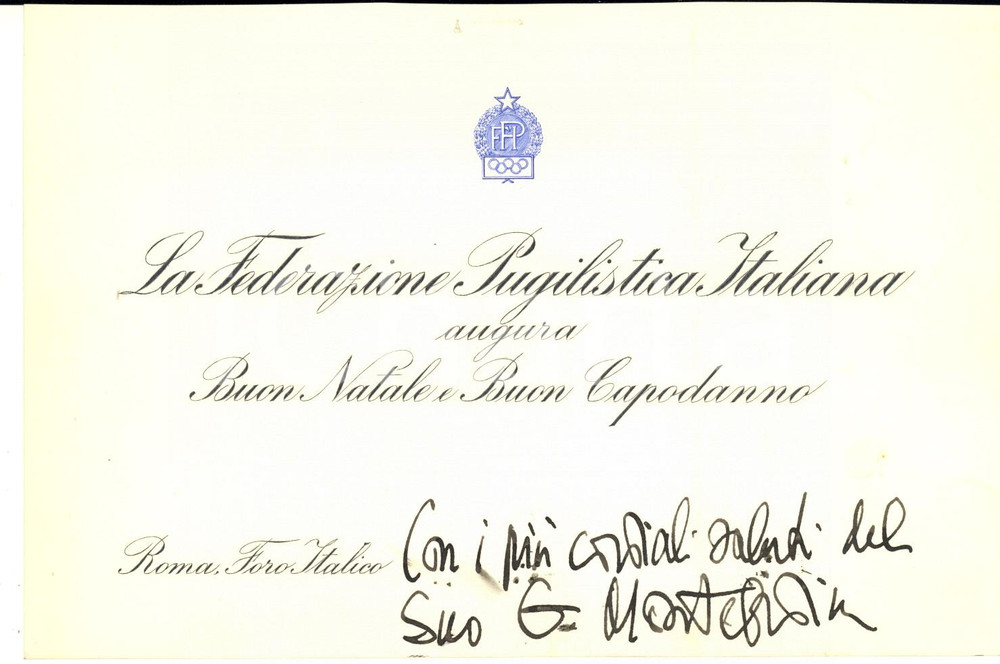 FPI
La Federazione Pugilistica Italiana
augura
Buon Natale e Buon Capodanno
Roma, Foro Italico
Con i più cordiali saluti del
Suo G.